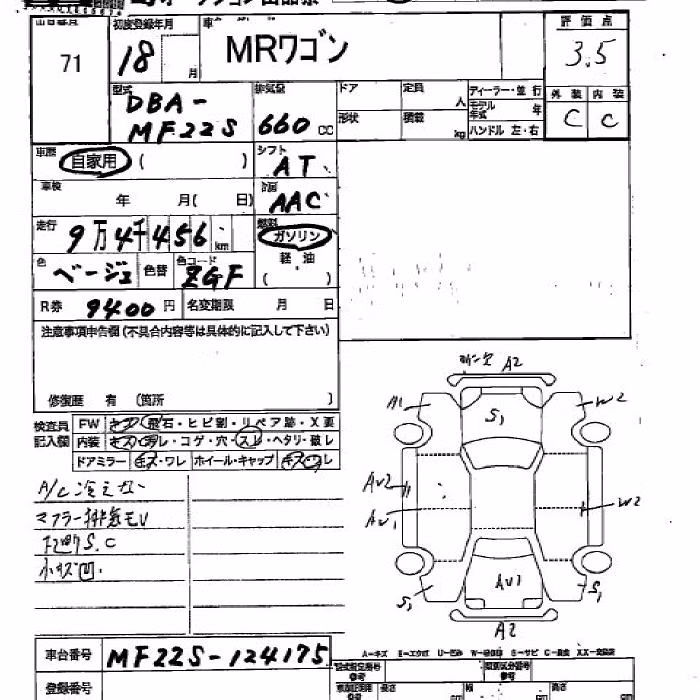 初度登録年月
評価点
71
18
月
MRワゴン
3.5
型式
排気量
ドア
定員
人
ディーラー・並行
モデル年式
年
外装
内装
DBA-
MF22S
660 cc
形状
積載
kg
ハンドル 左・右
C
C
車歴
自家用 ( )
シフト
AT
車検
年 月( 日)
AAC
走行
9万4千456 km
燃料
ガソリン
軽油
( )
色
ベージュ
色替
色コード
ZGF
R券
9400円
名変期限 月 日
注意事項申告欄(不具合内容等は具体的に記入して下さい)
修復歴 有 (箇所 )
検査員
記入欄
FW
キズ・飛石・ヒビ割・リペア跡・X要
内装
キズ・コゲ・穴・スレ・ヘタリ・破レ
ドアミラー
キズ・ワレ
ホイール・キャップ
キズ・ワレ
A/C冷えない
マフラー排気モレ
下廻りS.C
小キズ凹.
A2
A1
W2
S1
AU2
AU1
W2
S1
AU1
S1
A2
A-キズ E-エクボ U-凹み S-サビ C-腐食 XX-交換済
車台番号
MF22S-124175
登録番号
型式指定番号
参考
類別区分番号
参考
長さ
幅
高さ
cm
cm
cm